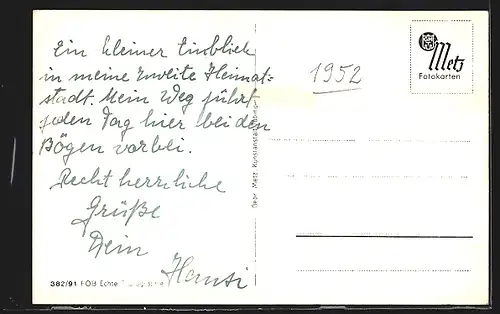 Ein kleiner Einblick
in meine zweite Heimat-
stadt. Mein Weg führt
jeden Tag hier bei den
Bögen vorbei.
Recht herzliche
Grüße
Dein
Hansi
1952
Metz
Fotokarten
Gebr. Metz, Kunstanstalt,
382/91 FOB Echte